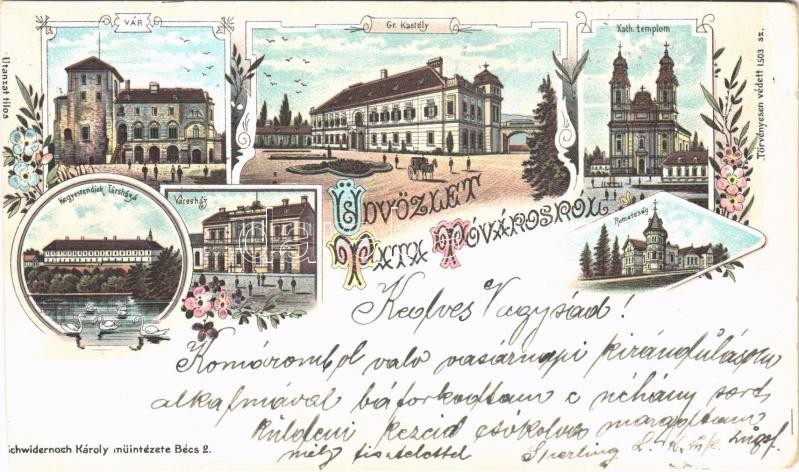 VÁR
Gr. Kastély
Kath. templom
Utanzat tilos
Törvényesen védett 1503 sz.
Kegyesrendiek Társháza
Városház
ÜDVÖZLET
TATA TÓVÁROSRÓL
Remeteség
Kedves Nagysád!
Komáromból való vasárnapi kirándulásom
alkalmával bátorkodtam e néhány sort
küldeni kezeid csókolva maradtam
mély tisztelettel Sperling L.
Schwidernoch Károly müintézete Bécs 2.